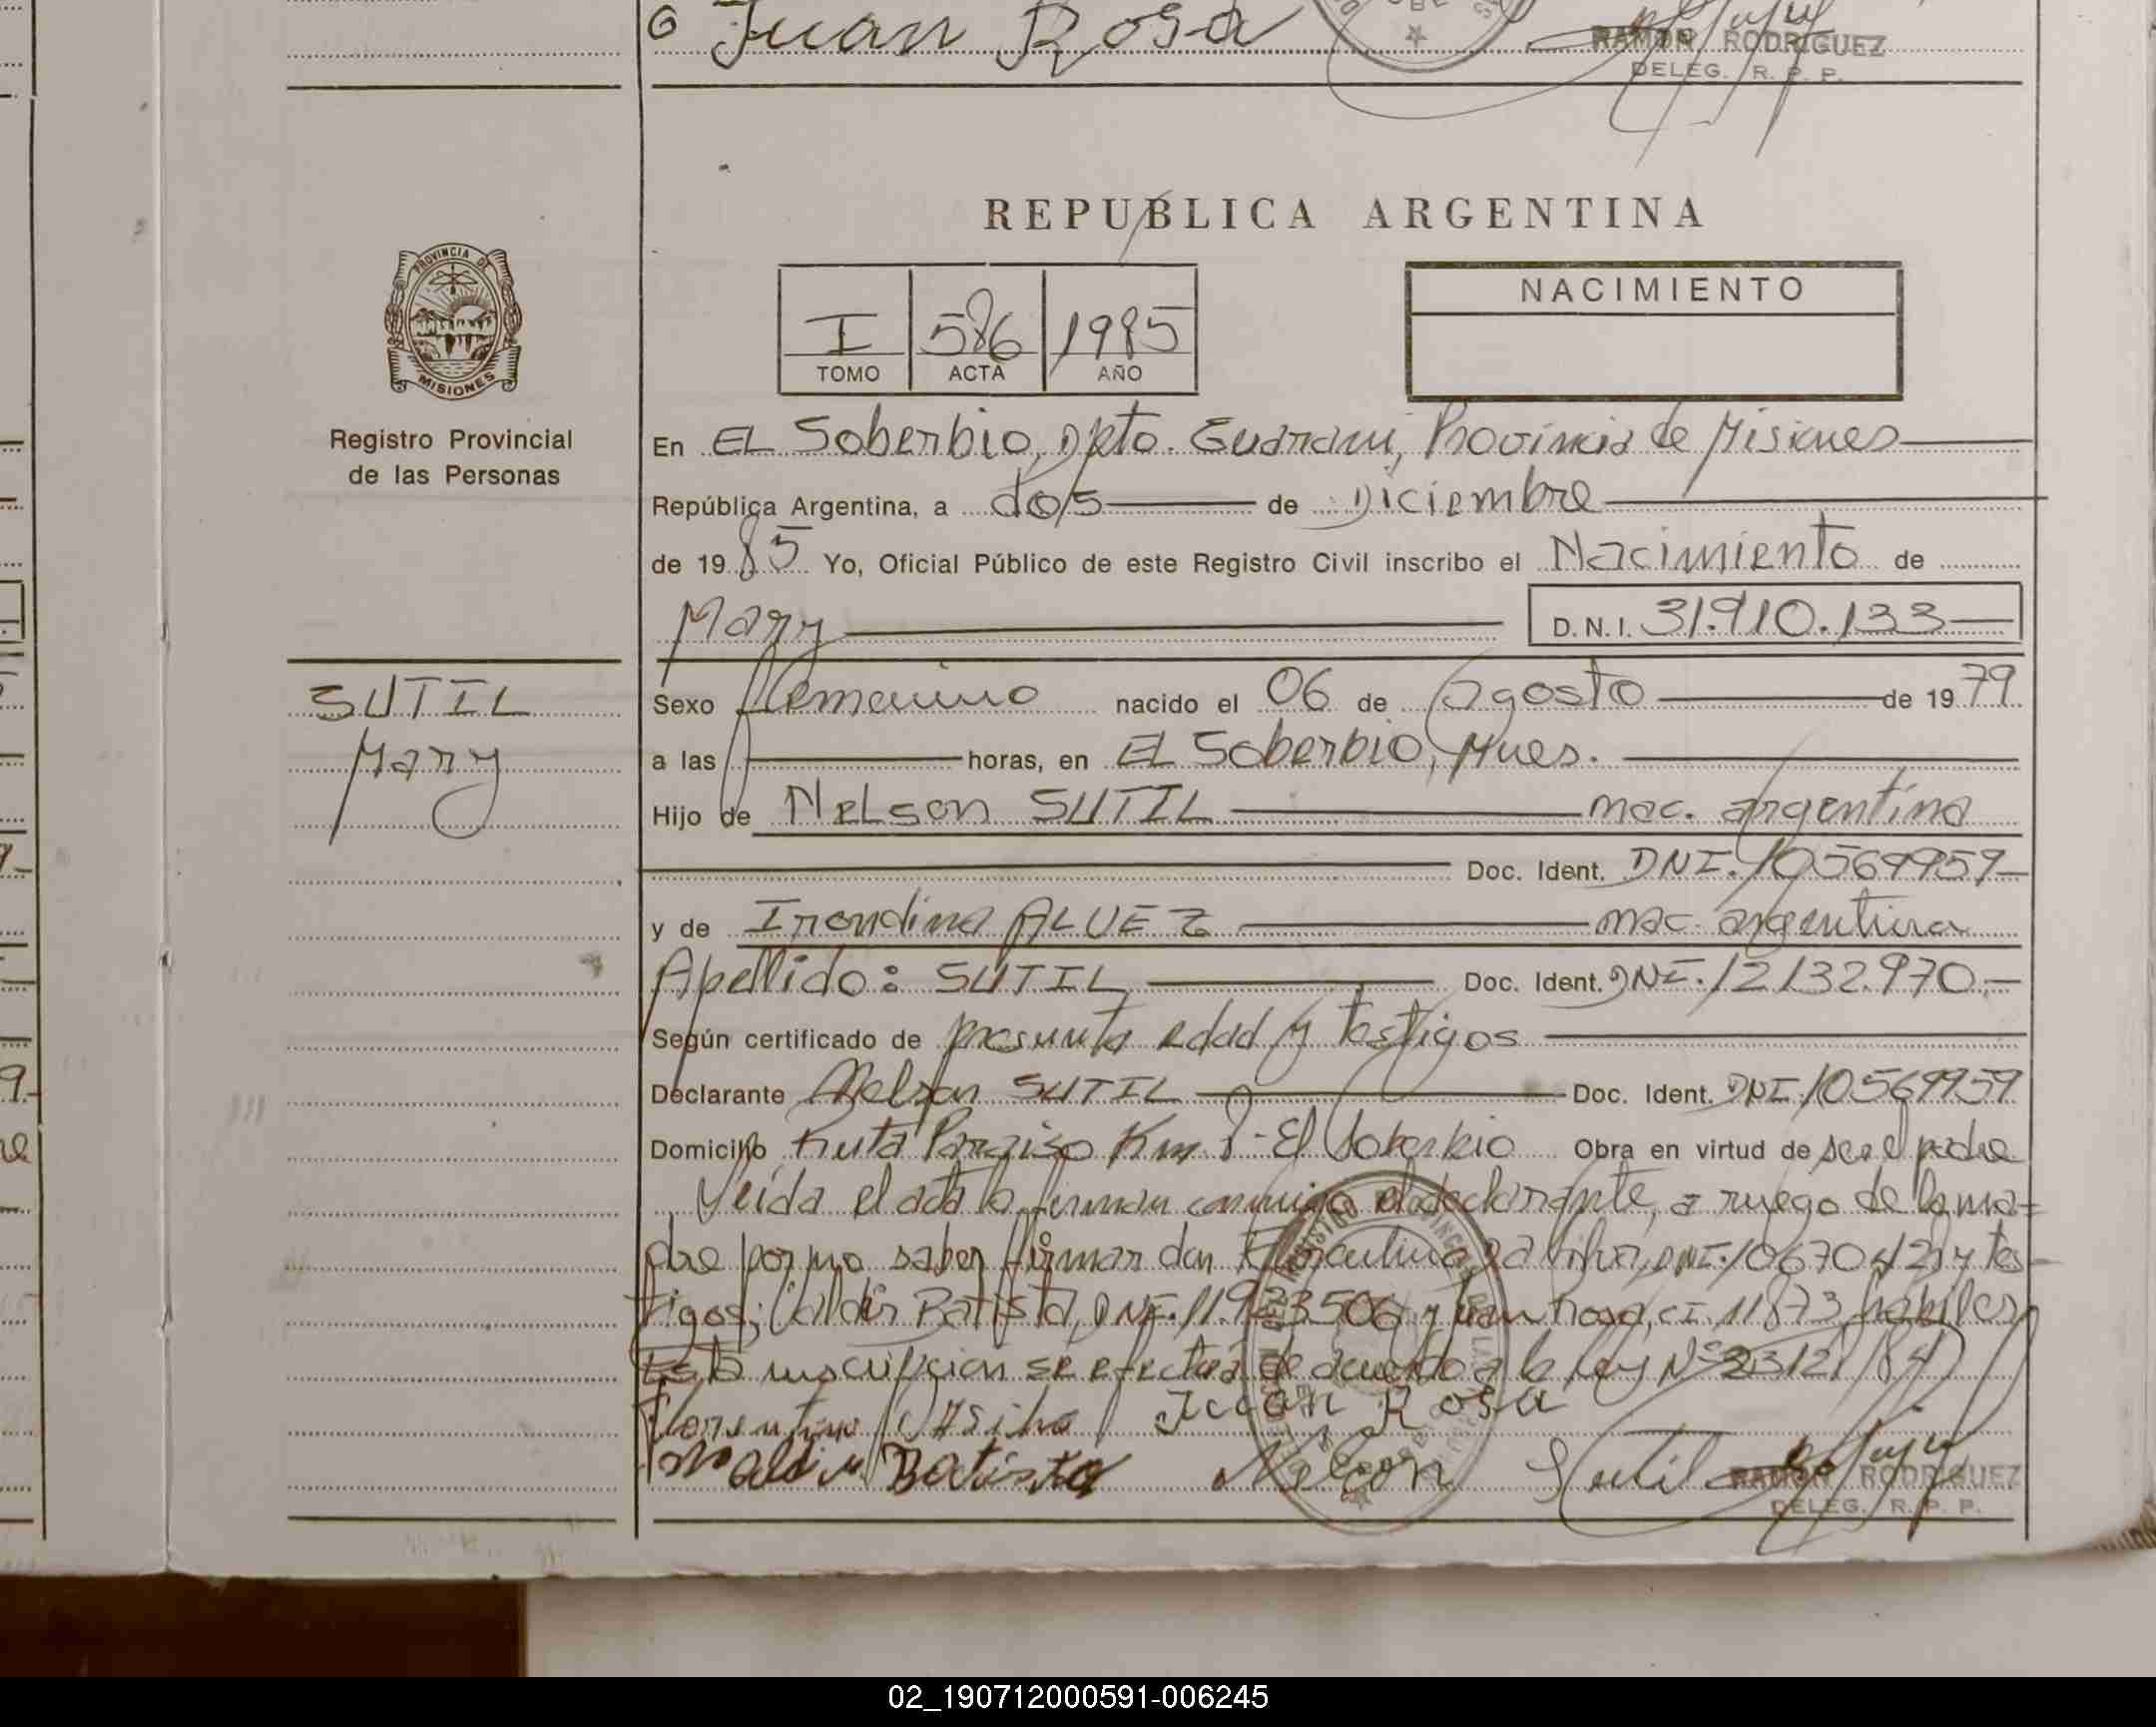 Juan Rosa
RAMON RODRIGUEZ
DELEG. R. P. P.
REPUBLICA ARGENTINA
PROVINCIA DE
MISIONES
Registro Provincial
de las Personas
I 586 1985
TOMO ACTA AÑO
NACIMIENTO
En EL Soberbio, Dpto. Guarani, Provincia de Misiones
República Argentina, a dos de Diciembre
de 1985 Yo, Oficial Público de este Registro Civil inscribo el Nacimiento de
Mary D.N.I. 31.910.133
SUTIL
Mary
Sexo femenino nacido el 06 de agosto de 1979
a las horas, en EL Soberbio, Mnes.
Hijo de Nelson SUTIL nac. argentina
Doc. Ident. DNI. 10569959
y de Irondina ALVEZ nac. argentina
Apellido: SUTIL Doc. Ident. DNI. 12132.970
Según certificado de presunta edad y testigos
Declarante Nelson SUTIL Doc. Ident. DNI 10569959
Domicilio Ruta Paraiso Km El Soberbio Obra en virtud de ser el padre
Leida el acta la firman conmigo el declarante, a ruego de la ma=
dre por no saber firmar don da Silva, DNI. y tes
tigos: Valdir Batista, DNI. 11.933506 y Juan Rosa, CI. 11873 habiles
Esta inscripcion se efectua de acuerdo a la ley Nº 23128/84
Juan Rosa
Batista Nelson Sutil
RAMON RODRIGUEZ
DELEG. R. P. P.
02_190712000591-006245